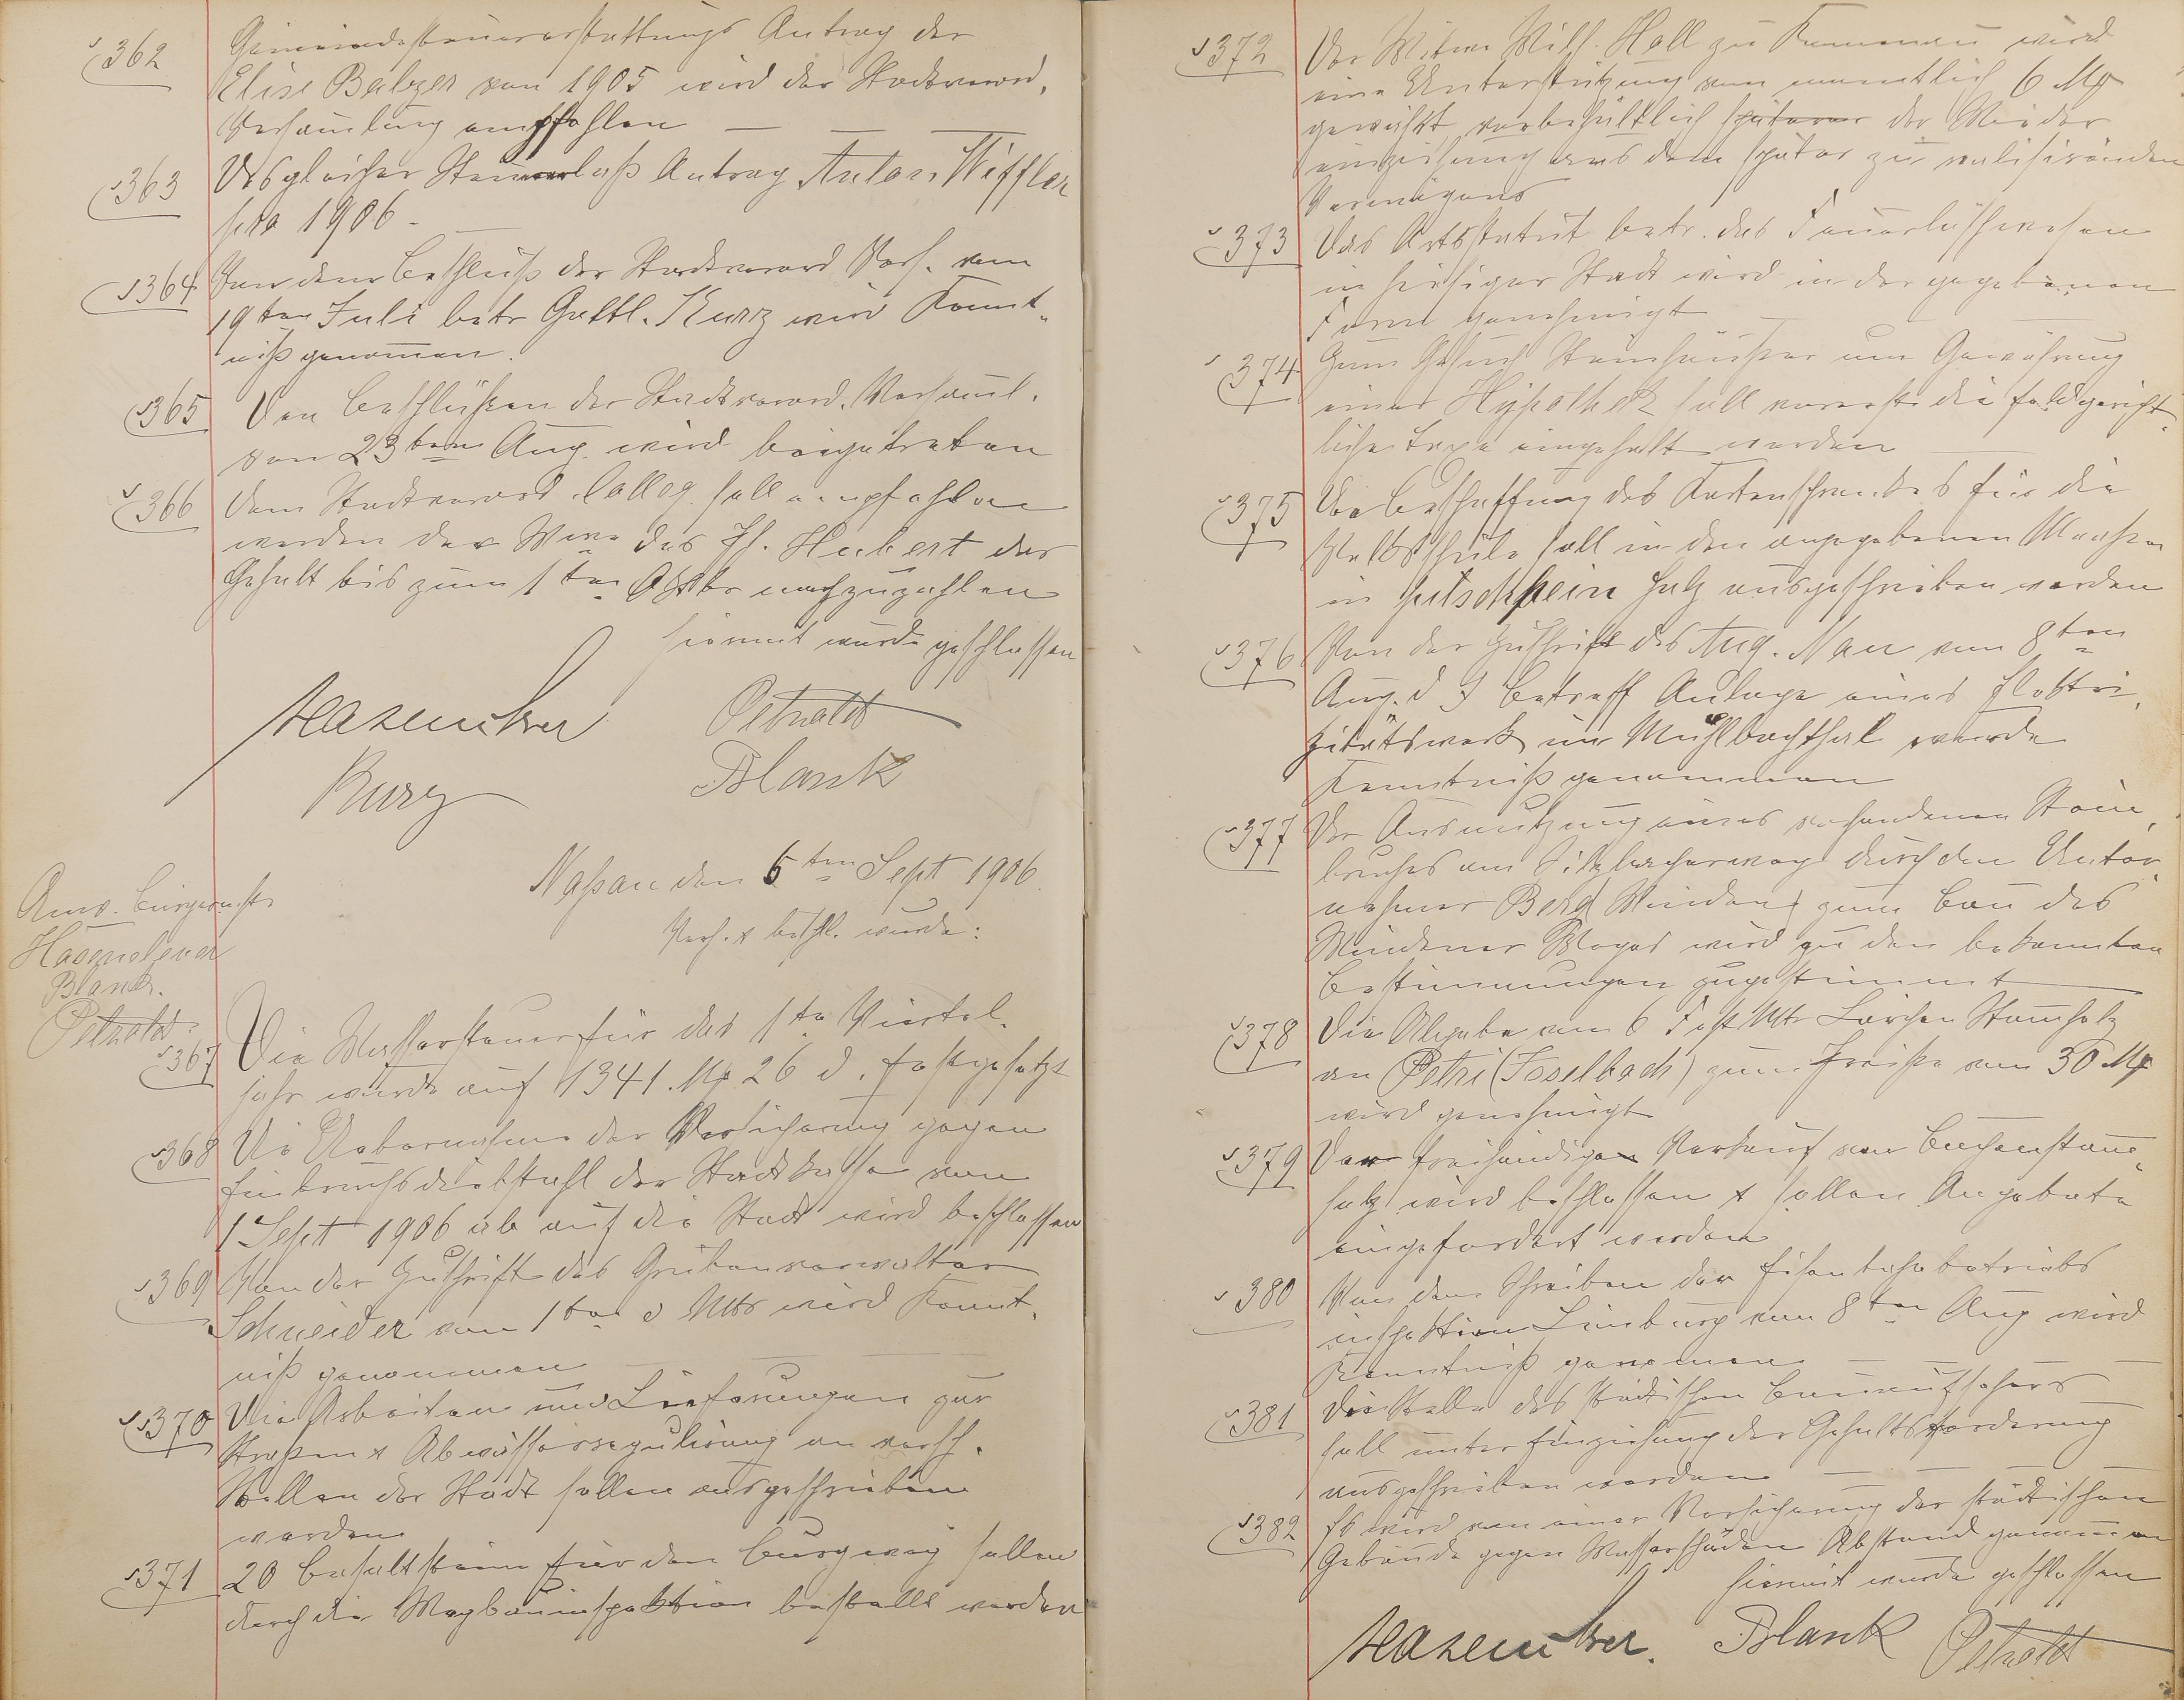 §362
Gemeindesteuererstattungs Antrag der
Elise Balzer von 1905 wird der Stadtverord.
Versamlung empfohlen
§363
Desgleichen Steuererlaß Antrag Anton
pro 1906.
§364
Von dem Beschluß der Stadtverord Vers. vom
19ten Juli betr Gottl. Kurz wird Kennt-
niß genommen.
§365
Den Beschlüßen der Stadtverord. Versaml.
von 23ten Aug. wird beigetreten
§366
Dem Stadtverord. Colleg soll empfohlen
werden der Wwe des Hubert das
Gehalt bis zum 1ten Oktbr nachzuzahlen
hiermit wurde geschlossen
Hasenclever
Petnoldt
Kurz
Blank
Naßau den 5ten Sept 1906.
Verh. & beschl. wurde:
Anw. Bürgermstr
Hasenclever
Blank.
Petnoldt.
§367
Die Wassersteuer für das 1te Viertel-
jahr wurde auf 1341. M 26 d. festgesetzt
§368
Die Uebernahme der Versicherung gegen
Einbruchsdiebstahl der Stadtkasse vom
1 Sept 1906 ab auf die Stadt wird beschlossen
§369
Von der Zuschrift des Grubenverwalter
Schneider vom 1ten d Mts wird Kennt-
niß genommen
§370
Die Arbeiten und Lieferungen zur
Straßen & Abwässerregulirung an versch.
Stellen der Stadt sollen ausgeschrieben
werden
§371
20 Basaltsteine für den Burgweg sollen
durch die Wegbauinspektion bestellt werden
§372
Der Witwe Wilh. Holl zu wird
eine Unterstützung von monatlich 6 M
gewährt vorbehältlich späterer der Wieder
einziehung aus dem später zu realisirenden
Vermögens
§373
Das Ortsstatut betr. das Feuerlöschwesen
in hiesiger Stadt wird in der gegebenen
Form genehmigt
§374
Zum Gesuch Steinhäußer um Gewährung
einer Hypothek soll vorerst die feldgericht-
liche Taxe eingeholt werden
§375
Die Beschaffung des Kartenschrankes für die
Volksschule soll in den angegebenen Maaßen
in pitschpein Holz ausgeschrieben werden
§376
Von der Zuschrift des Aug. Nau vom 8ten
Aug. d J betreff Anlage eines Elektri-
zitätswerk im Mühlbachthal wurde
Kenntniß genommen
§377
Der Ausnutzung eines vorhandenen Stein-
bruches am durch den Unter-
nehmer Beka (Winden) zum Bau des
Windener Weges wird zu den bekannten
Bestimmungen zugestimmt
§378
Die Abgabe von 6 Fest Mtr Lärchen Stammholz
an Petri (Isselbach) zum Preiße von 30 M
wird genehmigt
§379
Der freihändigen Verkauf von Buchenstamm-
holz wird beschlossen & sollen Angebote
eingefordert werden
§380
Von dem Schreiben der Eisenbahnbetriebs
inspektion Limburg vom 8ten Aug wird
Kenntniß genommen
§381
Die Stelle des städtischen Bauaufsehers
soll unter Einziehung der Gehaltsforderung
ausgeschrieben werden
§382
Es wird von einer Versicherung der städtischen
Gebäude gegen Wasserschäden Abstand genommen
hiermit wurde geschlossen
Hasenclever.
Blank
Petnoldt